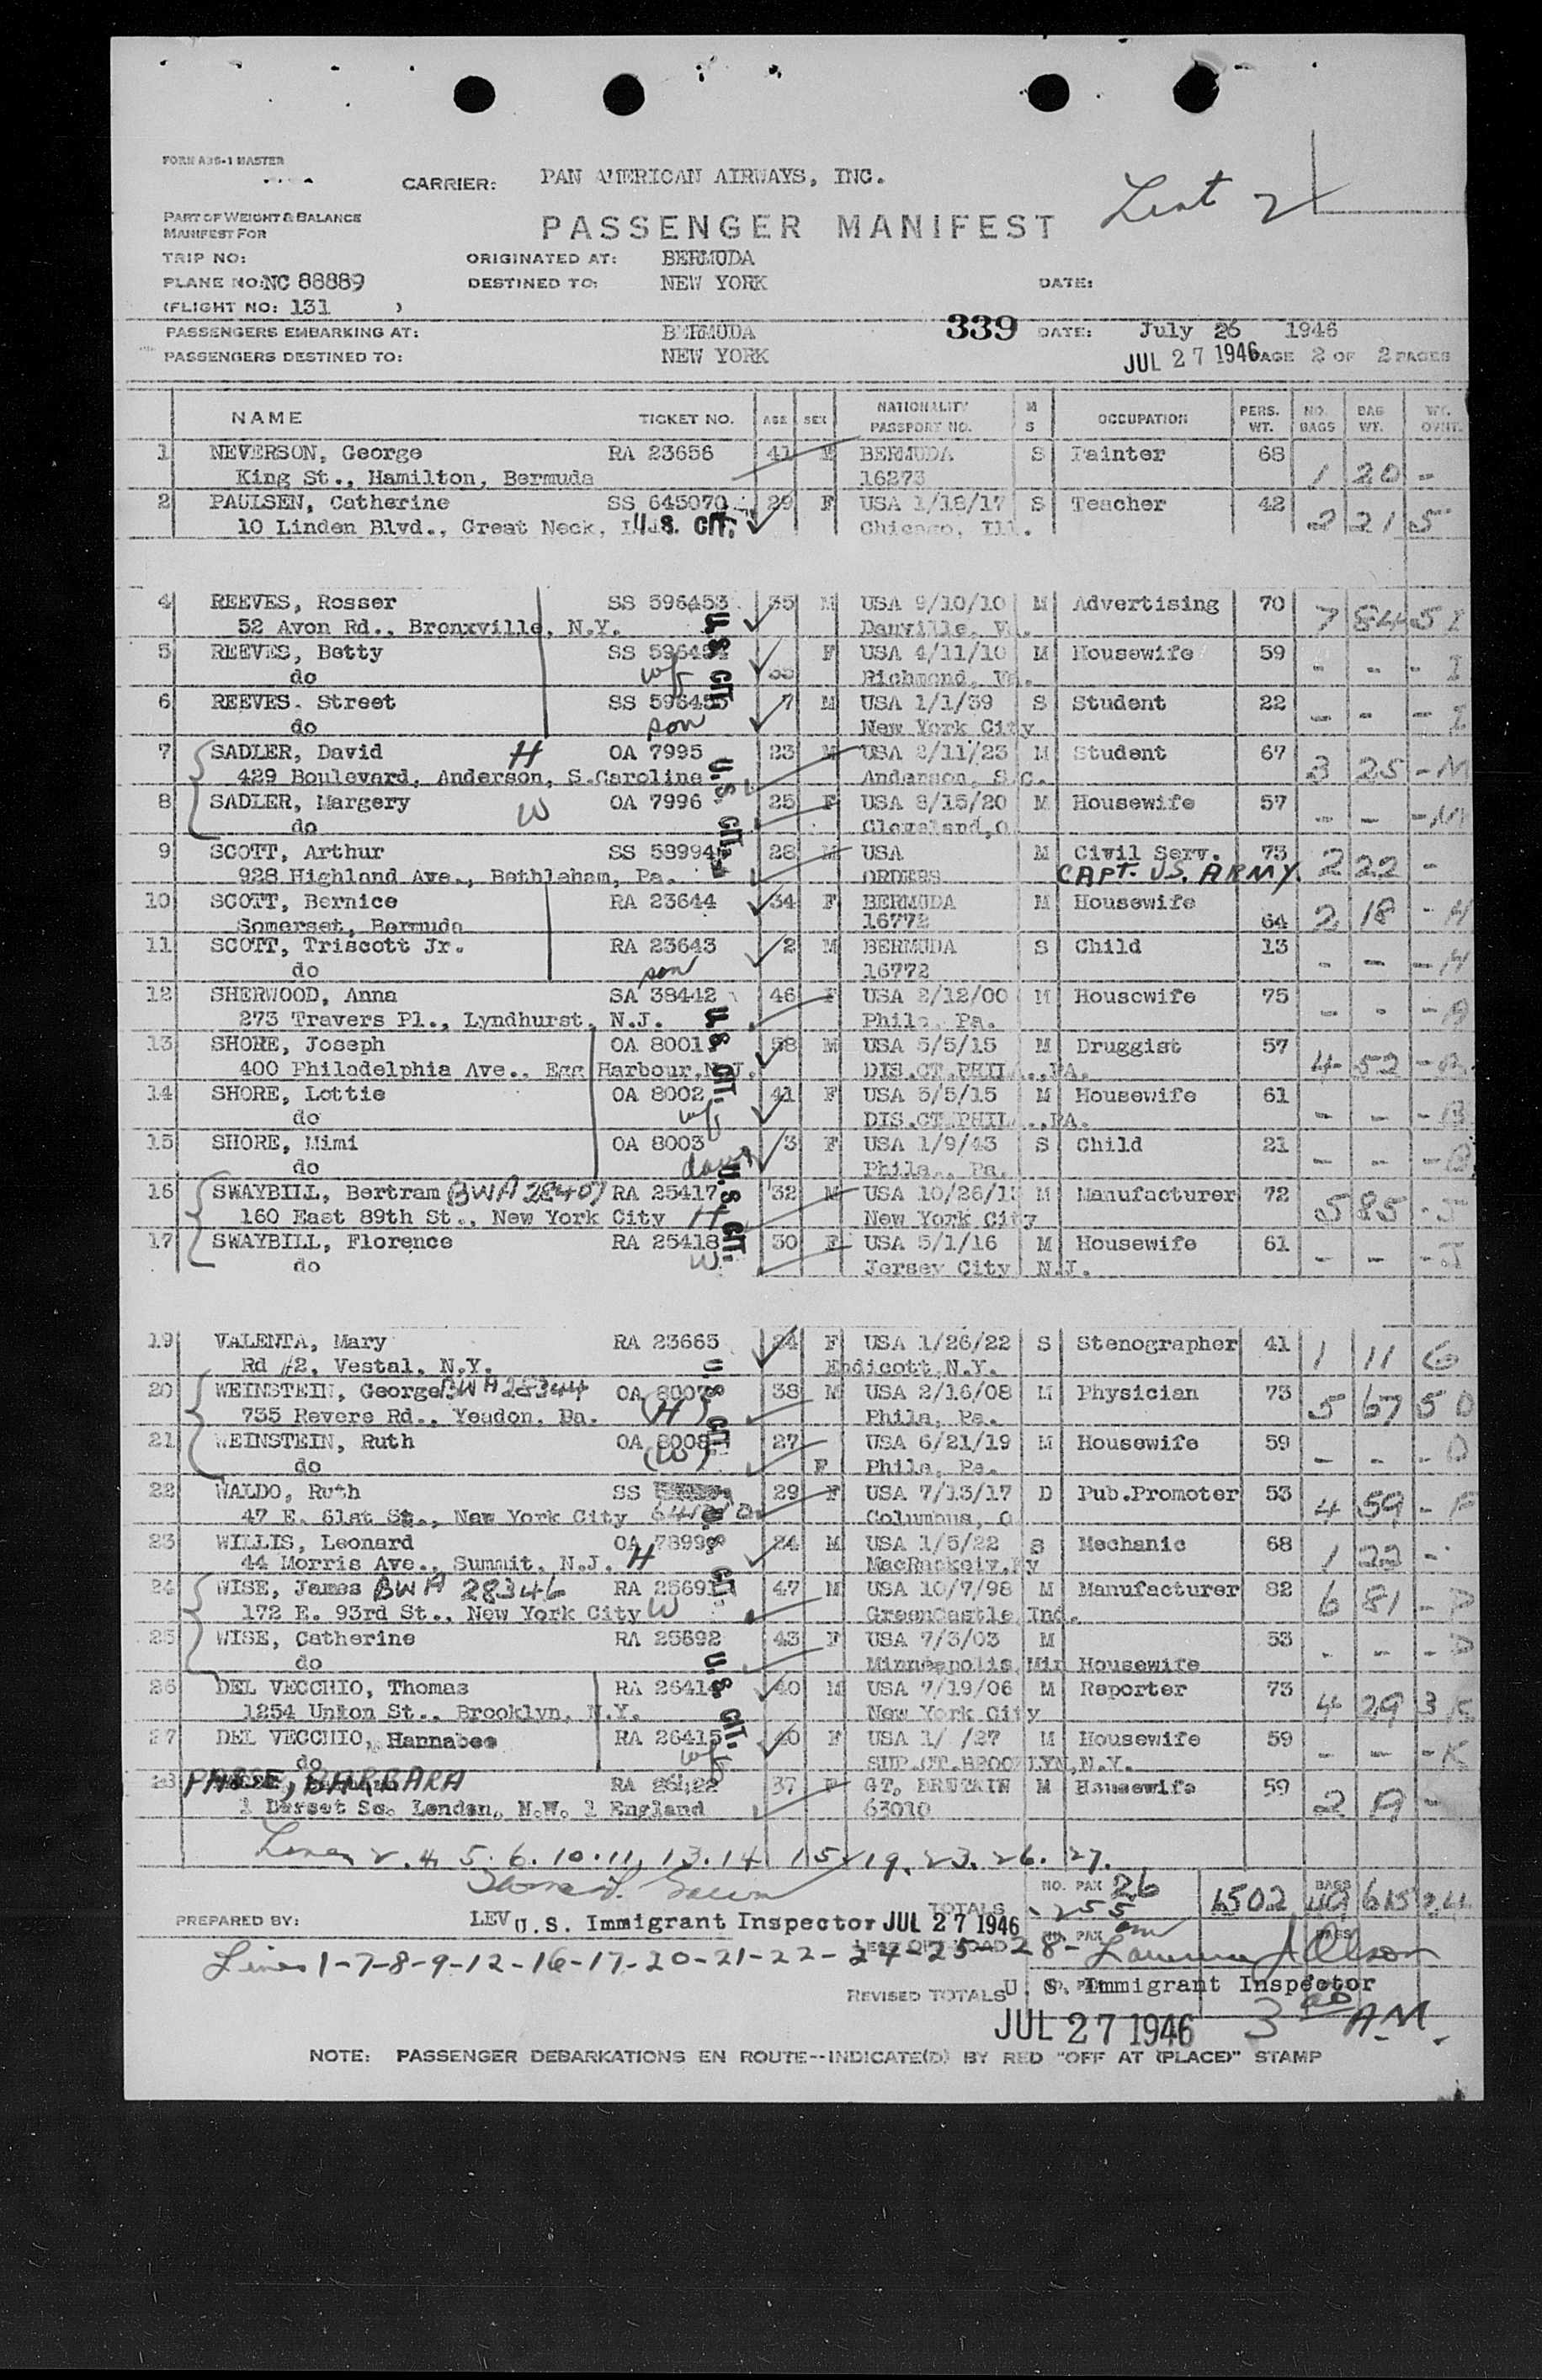 FORM A36-1 MASTER
CARRIER: PAN AMERICAN AIRWAYS, INC.
PART OF WEIGHT & BALANCE
MANIFEST FOR
PASSENGER MANIFEST
List 2
TRIP NO: ORIGINATED AT: BERMUDA
PLANE NO: NC 88889 DESTINED TO: NEW YORK DATE:
(FLIGHT NO: 131 )
PASSENGERS EMBARKING AT: BERMUDA 339 DATE: July 26 1946
PASSENGERS DESTINED TO: NEW YORK JUL 27 1946 PAGE 2 OF 2 PAGES
NAME TICKET NO. AGE SEX NATIONALITY PASSPORT NO. M S OCCUPATION PERS. WT. NO. BAGS BAG WT. WT. OVHT.
1 NEVERSON, George RA 23656 41 M BERMUDA S Painter 68
King St., Hamilton, Bermuda 16273 1 20 -
2 PAULSEN, Catherine SS 645070 29 F USA 1/18/17 S Teacher 42
10 Linden Blvd., Great Neck, U.S. CIT. Chicago, Ill. 2 21 5
4 REEVES, Rosser SS 596453 35 M USA 9/10/10 M Advertising 70 7 84 5 I
52 Avon Rd., Bronxville, N.Y. U.S. CIT. Danville, Va.
5 REEVES, Betty SS 596454 35 F USA 4/11/10 M Housewife 59 - - - I
do wf Richmond, Va.
6 REEVES. Street SS 596455 7 M USA 1/1/39 S Student 22 - - - I
do son New York City
7 SADLER, David H OA 7995 23 M USA 2/11/23 M Student 67 3 25 - M
429 Boulevard, Anderson, S.Carolina U.S. CIT. Anderson, S.C.
8 SADLER, Margery W OA 7996 25 F USA 8/15/20 M Housewife 57 - - - M
do Cleveland,O
9 SCOTT, Arthur SS 58994 28 M USA M Civil Serv. 73 2 22 -
928 Highland Ave., Bethleham, Pa. ORDERS CAPT. US. ARMY.
10 SCOTT, Bernice RA 23644 34 F BERMUDA M Housewife
Somerset, Bermuda 16772 64 2 18 - H
11 SCOTT, Triscott Jr. RA 23643 2 M BERMUDA S Child 13 - - - H
do son 16772
12 SHERWOOD, Anna SA 38442 46 F USA 2/12/00 M Housewife 75 - - - A
273 Travers Pl., Lyndhurst, N.J. U.S. CIT. Phila, Pa.
13 SHORE, Joseph OA 8001 58 M USA 5/5/15 M Druggist 57 4 52 - B
400 Philadelphia Ave., Egg Harbour,N.J. DIS.CT.PHILA.,PA.
14 SHORE, Lottie OA 8002 41 F USA 5/5/15 M Housewife 61 - - - B
do wf DIS.CT.PHILA.,PA.
15 SHORE, Mimi OA 8003 3 F USA 1/9/43 S Child 21 - - - B
do daug Phila., Pa.
16 SWAYBILL, Bertram BWA 28407 RA 25417 32 M USA 10/26/13 M Manufacturer 72 5 85 - J
160 East 89th St., New York City H U.S. CIT. New York City
17 SWAYBILL, Florence RA 25418 30 F USA 5/1/16 M Housewife 61 - - - J
do W Jersey City N.J.
19 VALENTA, Mary RA 23665 24 F USA 1/26/22 S Stenographer 41 1 11 G
Rd #2, Vestal, N.Y. Endicott N.Y.
20 WEINSTEIN, George BWA 28344 OA 8007 38 M USA 2/16/08 M Physician 73 5 67 5 D
735 Revere Rd., Yeadon, Pa. (H) U.S. CIT. Phila, Pa.
21 WEINSTEIN, Ruth OA 8008 27 F USA 6/21/19 M Housewife 59 - - - D
do (W) Phila, Pa.
22 WALDO, Ruth SS 29 F USA 7/13/17 D Pub.Promoter 53 4 59 - F
47 E. 61st St., New York City Columbus, O
23 WILLIS, Leonard OA 7899 24 M USA 1/5/22 S Mechanic 68 1 22 -
44 Morris Ave., Summit, N.J. H U.S. CIT.
24 WISE, James BWA 28346 RA 25691 47 M USA 10/7/98 M Manufacturer 82 6 81 - P
172 E. 93rd St., New York City W GreenCastle Ind.
25 WISE, Catherine RA 25692 43 F USA 7/3/03 M 53 - - - P
do Minneapolis, Min Housewife
26 DEL VECCHIO, Thomas RA 26414 40 M USA 7/19/06 M Reporter 73 4 29 3 K
1254 Union St., Brooklyn, N.Y. U.S. CIT. New York City
27 DEL VECCHIO, Hannabee RA 26415 40 F USA 1/ /27 M Housewife 59 - - - K
do wf SUP.CT.BROOKLYN,N.Y.
28 PASSE, BARBARA RA 26422 37 F GT, BRITAIN M Housewife 59
1 Dorset Sq. London, N.W. 1 England 63010 2 A -
Lines 2. 4. 5. 6. 10. 11. 13. 14 15 19. 23. 26. 27.
TOTALS NO. PAX 26 1502 BAGS 49 615 24
PREPARED BY: LEV U.S. Immigrant Inspector JUL 27 1946 255
Lines 1-7-8-9-12-16-17-20-21-22-24-25-28-
REVISED TOTALS U. S. Immigrant Inspector
JUL 27 1946 3 00 A.M.
NOTE: PASSENGER DEBARKATIONS EN ROUTE--INDICATE(D) BY RED "OFF AT (PLACE)" STAMP